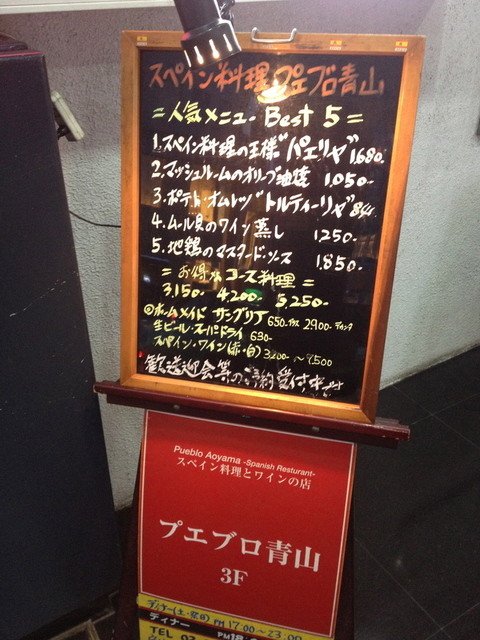 スペイン料理 プエブロ青山
= 人気メニュー Best 5 =
1.スペイン料理の王様"パエリヤ" 1,680-
2.マッシュルームのオリーブ油焼 1,050-
3.ポテト・オムレツ"トルティーリャ" 844-
4.ムール貝のワイン蒸し 1,250-
5.地鶏のマスタード・ソース 1,850-
= お得なコース料理 =
3,150- 4,200- 5,250-
◎ホームメイド サングリア 650-グラス 2900-デキャンタ
生ビール・スーパードライ 630-
スペイン・ワイン(赤・白) 3,200- 〜 9,500
歓送迎会等のご予約受付中です
Pueblo Aoyama -Spanish Resturant-
スペイン料理とワインの店
プエブロ青山
3F
ディナー(土・祭日) PM 17:00〜23:00
ディナー
TEL 03